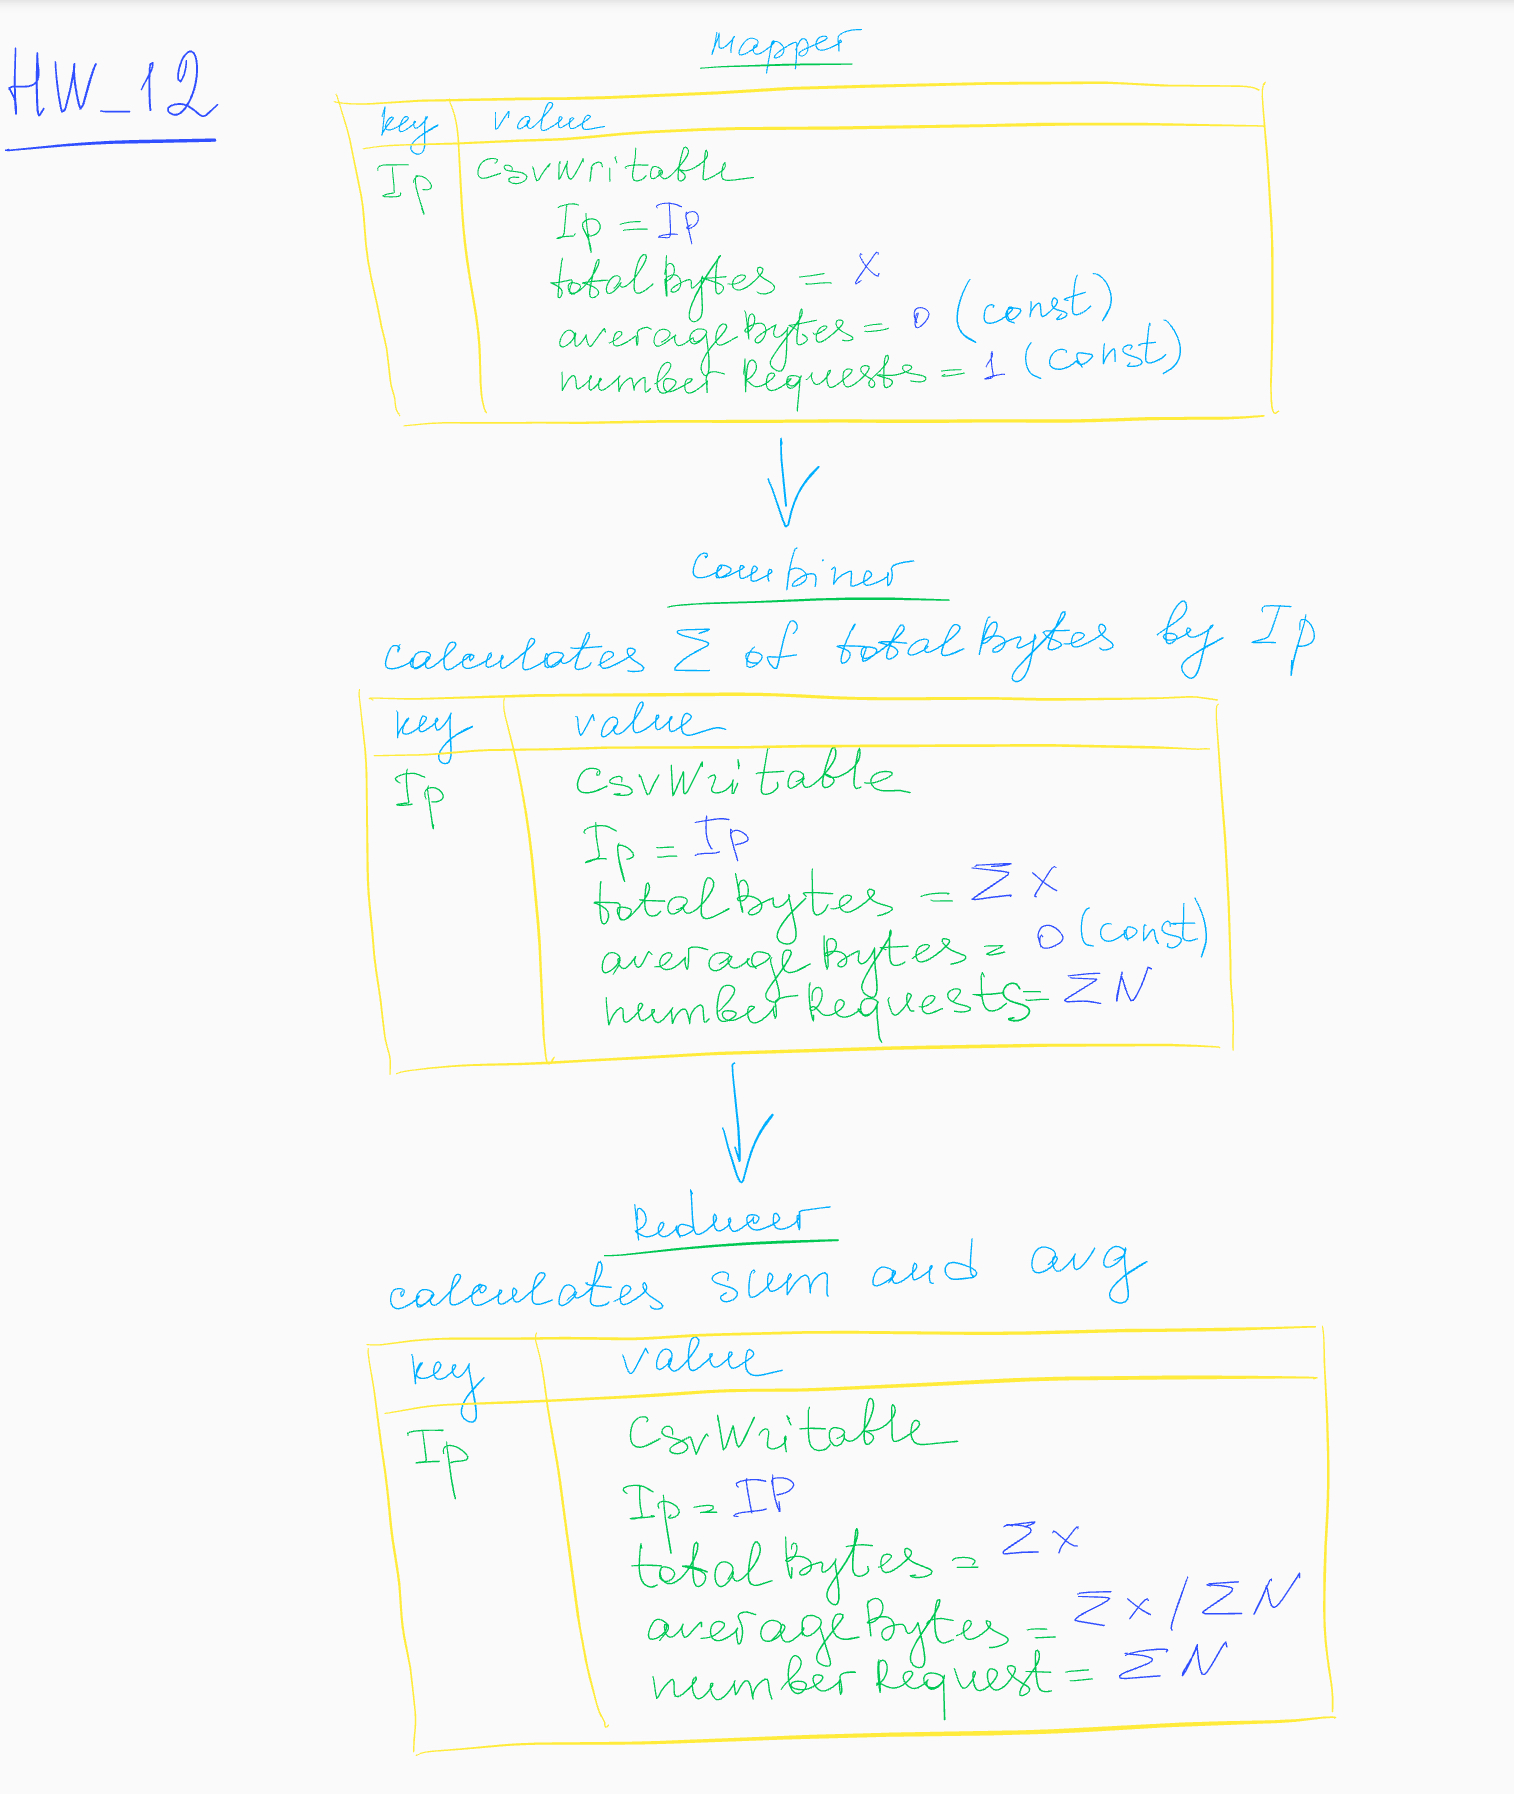 HW_12
Mapper
key value
Ip CsvWritable
Ip = Ip
totalBytes = x
averageBytes = 0 (const)
numberRequests = 1 (const)
Combiner
calculates Σ of totalBytes by Ip
key value
Ip CsvWritable
Ip = Ip
totalBytes = Σ x
averageBytes = 0 (const)
numberRequests = Σ N
Reducer
calculates sum and avg
key value
Ip CsvWritable
Ip = IP
totalBytes = Σ x
averageBytes = Σ x / Σ N
numberRequest = Σ N